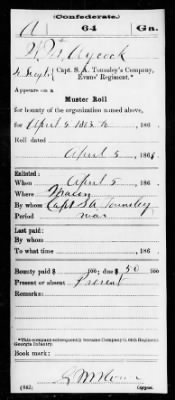 (Confederate.)
A 64 Ga.
Aycock
Capt. S. A. Townsley's Company,
Evans' Regiment.*
Appears on a
Muster Roll
for bounty of the organization named above,
for April 5, 186
Roll dated
April 5, 186
Enlisted:
When April 5, 186 .
Where Macon
By whom Capt S A Townsley
Period war
Last paid:
By whom
To what time , 186 .
Bounty paid $ 100; due $ 50 100
Present or absent Present
Remarks:
*This company subsequently became Company A, 64th Regiment Georgia Infantry.
Book mark:
(642) Copyist.